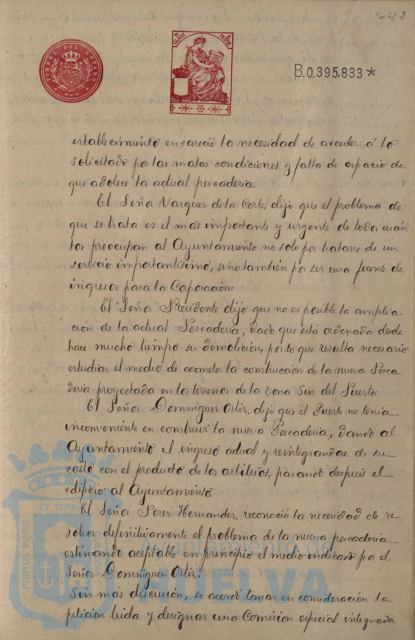 B.0.395.833*
establecimiento encareció la necesidad de acceder á lo
solicitado por las malas condiciones y falta de espacio de
que adolece la actual pescadería.
El Señor Vazquez de la Corte, dijo que el problema de
que se trata es el mas importante y urgente de todos cuan
tos preocupan al Ayuntamiento no solo por tratarse de un
servicio importantísimo, sino también por ser una fuente de
ingresos para la Corporación
El Señor Presidente dijo que no es posible la amplia
ción de la actual Pescadería, dado que está ordenada desde
hace mucho tiempo su demolición, por lo que resulta necesario
estudiar el medio de acometer la construcción de la nueva Pesca
dería proyectada en los terrenos de la zona Sur del Puerto
El Señor Dominguez Ortiz, dijo que el Puerto no tenía
inconveniente en construir la nueva Pescadería, dando al
Ayuntamiento el ingreso actual y reintegrandose de su
costo con el producto de los arbitrios, pasando después el
edificio al Ayuntamiento
El Señor Perez Hernandez, reconoció la necesidad de re
solver definitivamente el problema de la nueva pescadería
estimando aceptable en principio el medio indicado por el
Señor Dominguez Ortiz.
Sin mas discusión, se acordó tomar en consideración la
petición leida y designar una Comisión especial integrada
HUELVA